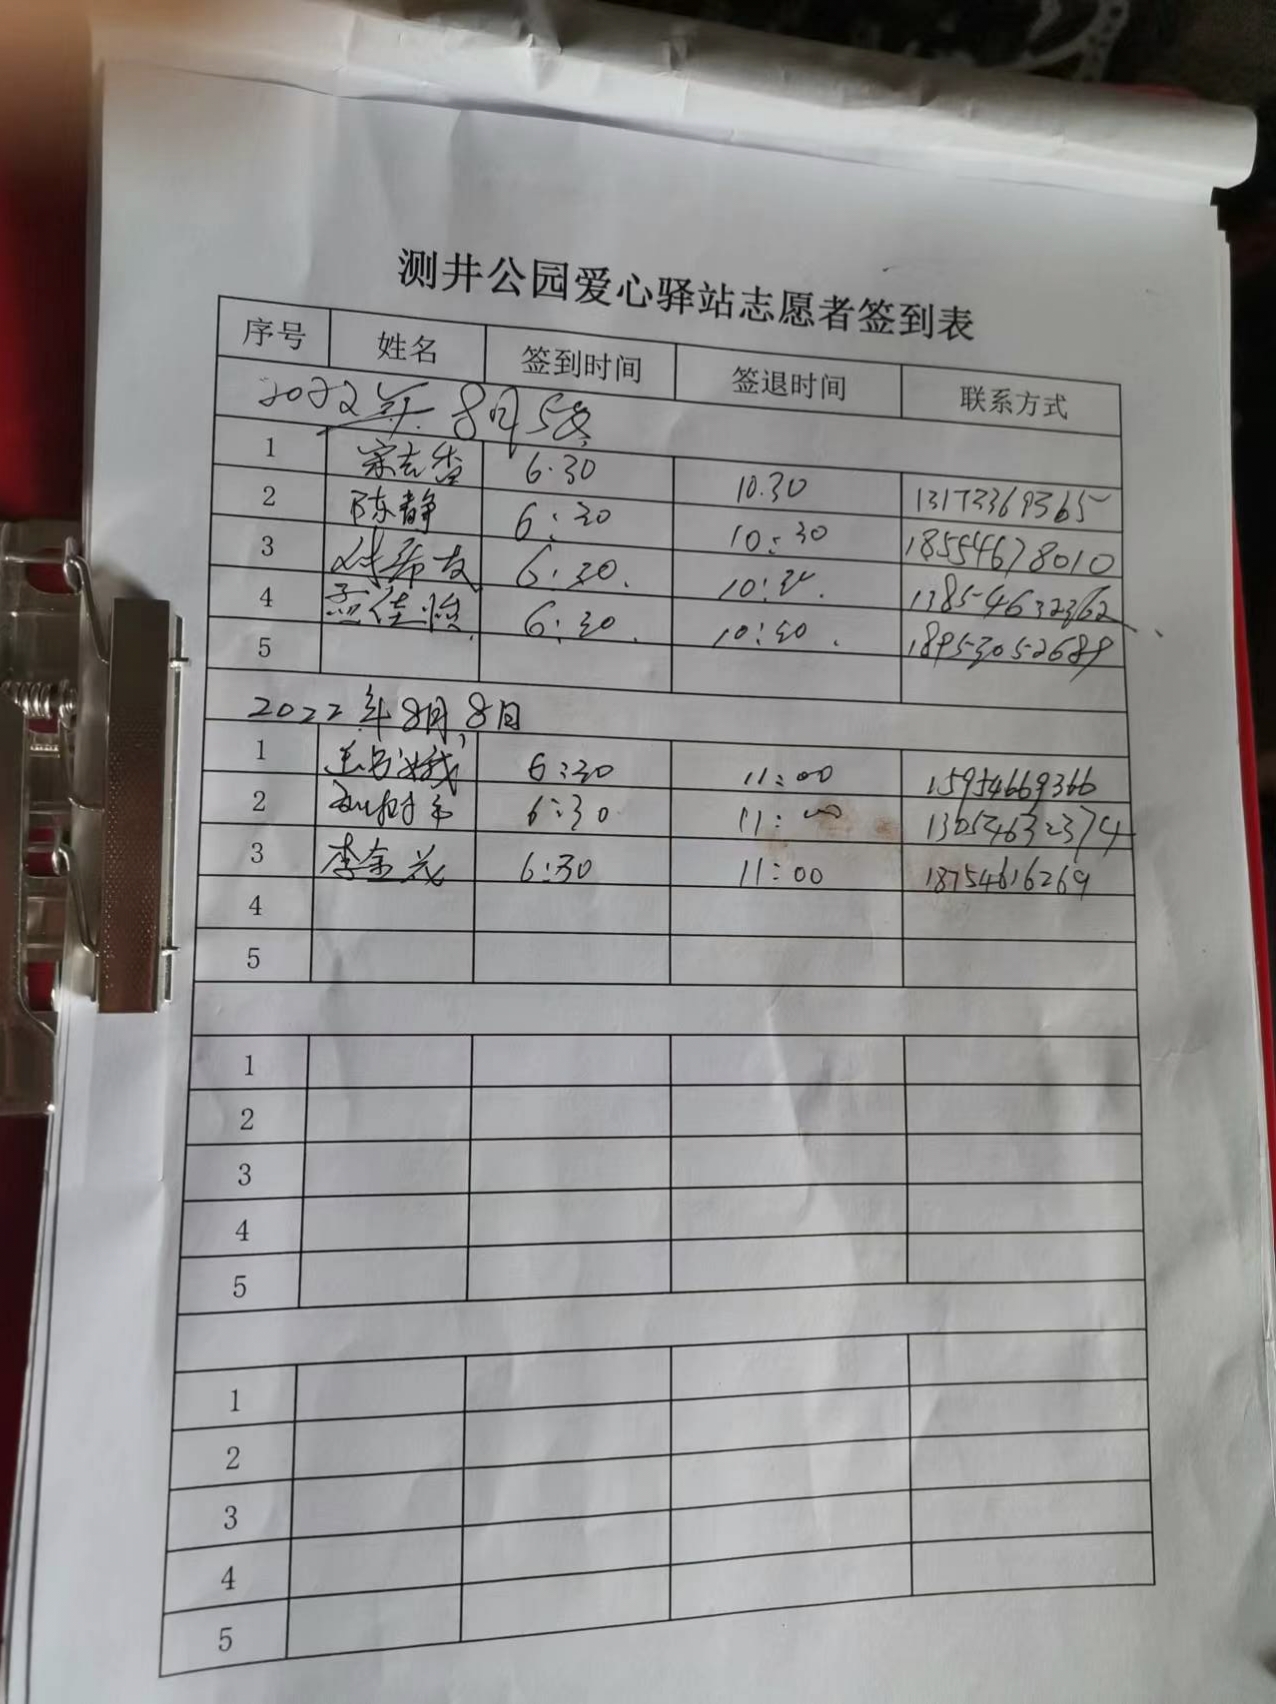 测井公园爱心驿站志愿者签到表
序号 姓名 签到时间 签退时间 联系方式
2022年8月5日
1 宋志香 6.30 10.30 13173369365
2 陈静 6:30 10:30 18554678010
3 6:30. 10:30. 13854632362
4 孟佳怡 6:30. 10:30. 18953052689
5
2022年8月8日
1 6:30 11:00 15954669366
2 6:30 11:00 13054632374
3 李金花 6:30 11:00 18754616269
4
5
1
2
3
4
5
1
2
3
4
5